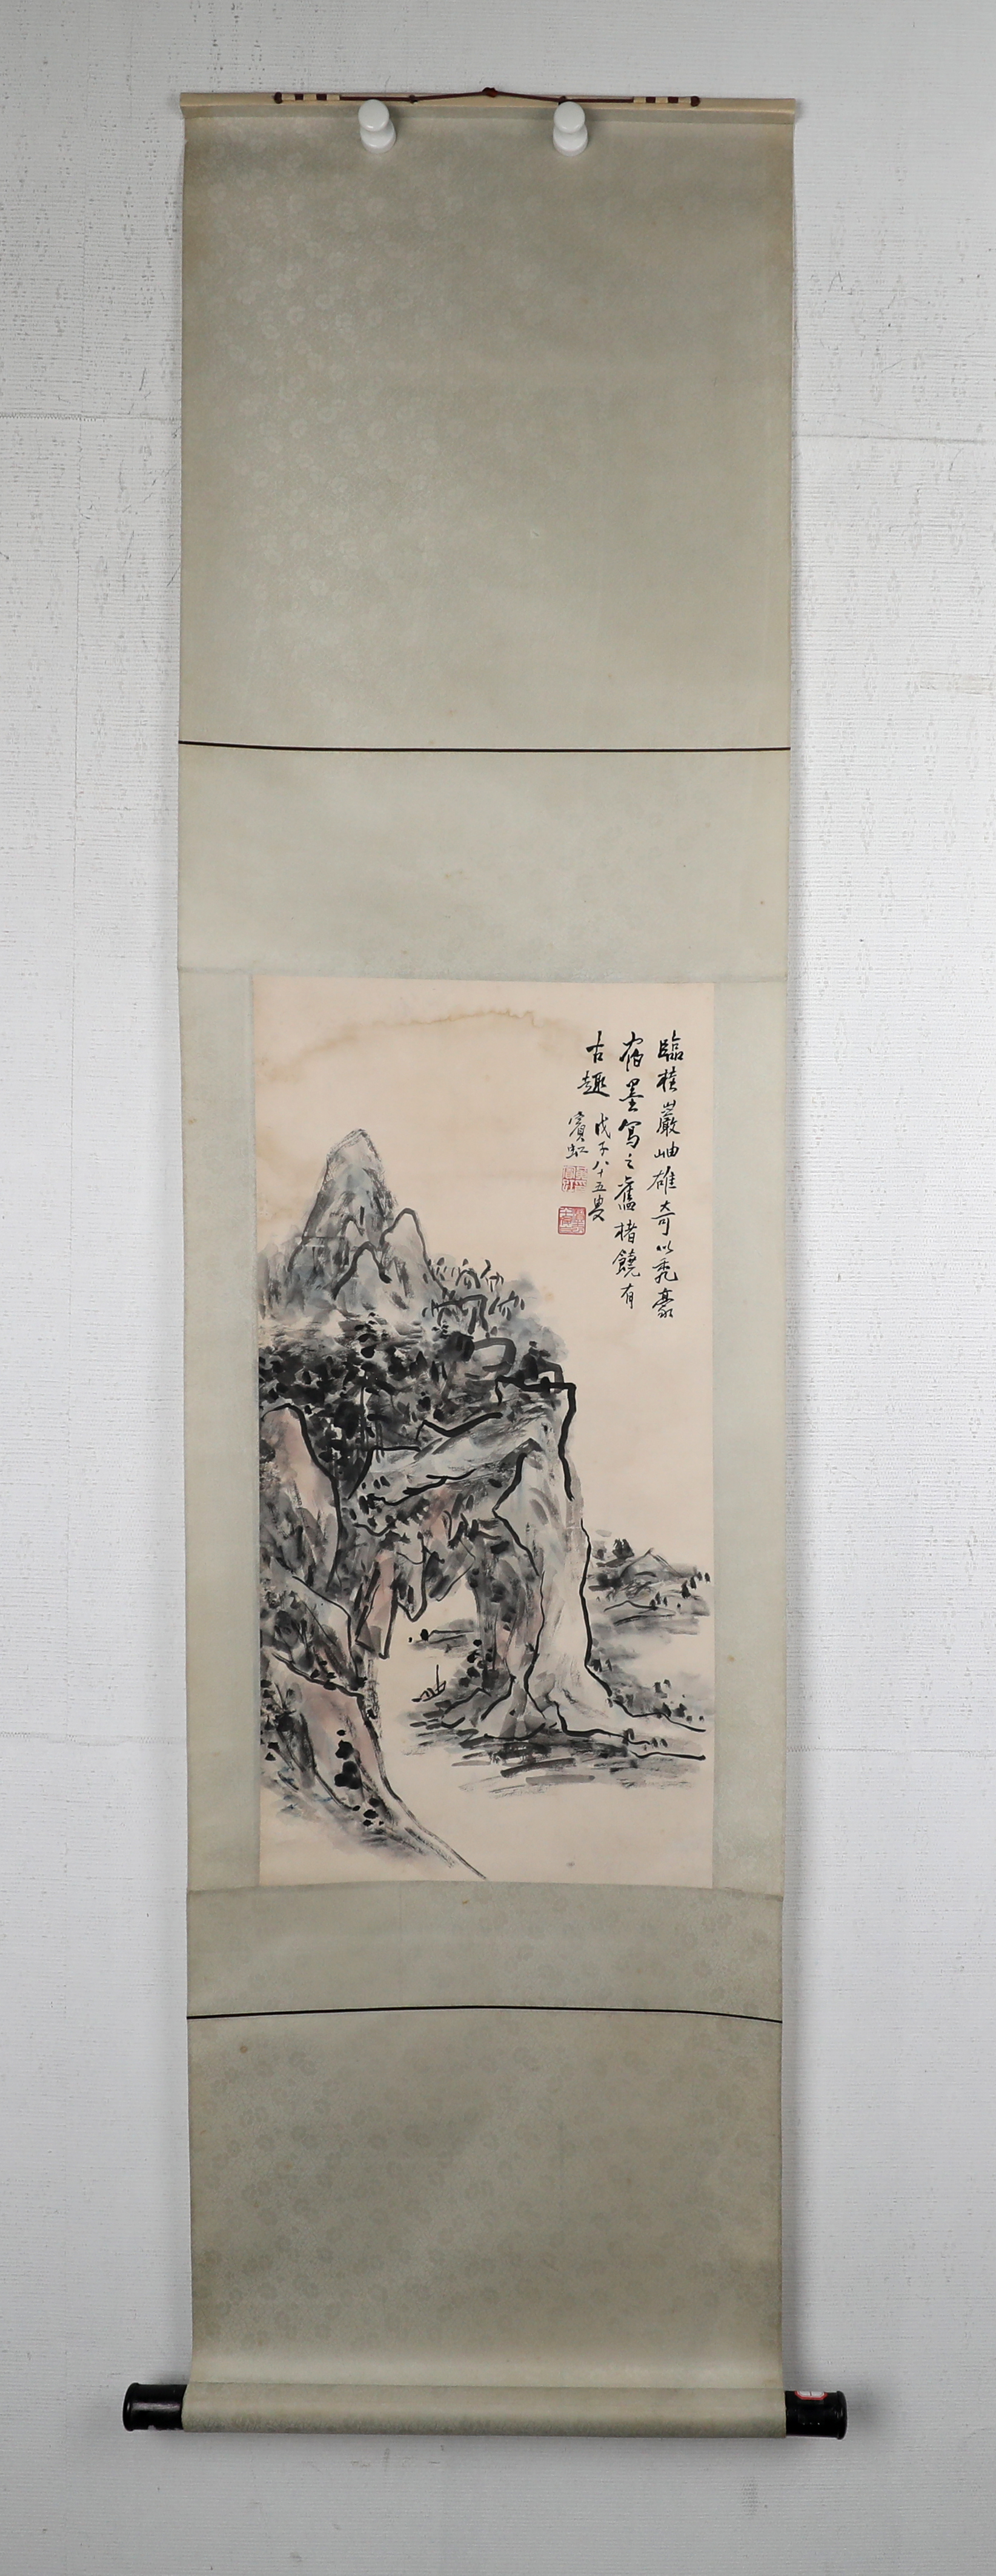 臨桂巖岫雄奇以禿豪
宿墨寫之舊楮饒有
古趣
戊子八十五叟
賓虹